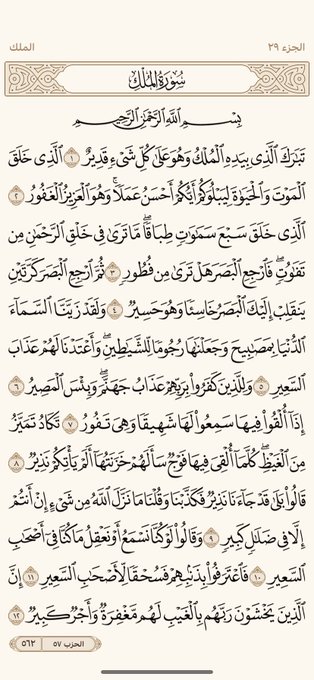 الجزء ٢٩
الملك
سُورَةُ الْمُلْكِ
بِسْمِ اللَّهِ الرَّحْمَٰنِ الرَّحِيمِ
تَبَٰرَكَ ٱلَّذِى بِيَدِهِ ٱلْمُلْكُ وَهُوَ عَلَىٰ كُلِّ شَىْءٍ قَدِيرٌ ١ ٱلَّذِى خَلَقَ
ٱلْمَوْتَ وَٱلْحَيَوٰةَ لِيَبْلُوَكُمْ أَيُّكُمْ أَحْسَنُ عَمَلًا ۚ وَهُوَ ٱلْعَزِيزُ ٱلْغَفُورُ ٢
ٱلَّذِى خَلَقَ سَبْعَ سَمَٰوَٰتٍ طِبَاقًا ۖ مَّا تَرَىٰ فِى خَلْقِ ٱلرَّحْمَٰنِ مِن
تَفَٰوُتٍ ۖ فَٱرْجِعِ ٱلْبَصَرَ هَلْ تَرَىٰ مِن فُطُورٍ ٣ ثُمَّ ٱرْجِعِ ٱلْبَصَرَ كَرَّتَيْنِ
يَنقَلِبْ إِلَيْكَ ٱلْبَصَرُ خَاسِئًا وَهُوَ حَسِيرٌ ٤ وَلَقَدْ زَيَّنَّا ٱلسَّمَآءَ
ٱلدُّنْيَا بِمَصَٰبِيحَ وَجَعَلْنَٰهَا رُجُومًا لِّلشَّيَٰطِينِ ۖ وَأَعْتَدْنَا لَهُمْ عَذَابَ
ٱلسَّعِيرِ ٥ وَلِلَّذِينَ كَفَرُوا۟ بِرَبِّهِمْ عَذَابُ جَهَنَّمَ ۖ وَبِئْسَ ٱلْمَصِيرُ ٦
إِذَآ أُلْقُوا۟ فِيهَا سَمِعُوا۟ لَهَا شَهِيقًا وَهِىَ تَفُورُ ٧ تَكَادُ تَمَيَّزُ
مِنَ ٱلْغَيْظِ ۖ كُلَّمَآ أُلْقِىَ فِيهَا فَوْجٌ سَأَلَهُمْ خَزَنَتُهَآ أَلَمْ يَأْتِكُمْ نَذِيرٌ ٨
قَالُوا۟ بَلَىٰ قَدْ جَآءَنَا نَذِيرٌ فَكَذَّبْنَا وَقُلْنَا مَا نَزَّلَ ٱللَّهُ مِن شَىْءٍ إِنْ أَنتُمْ
إِلَّا فِى ضَلَٰلٍ كَبِيرٍ ٩ وَقَالُوا۟ لَوْ كُنَّا نَسْمَعُ أَوْ نَعْقِلُ مَا كُنَّا فِىٓ أَصْحَٰبِ
ٱلسَّعِيرِ ١٠ فَٱعْتَرَفُوا۟ بِذَنۢبِهِمْ فَسُحْقًا لِّأَصْحَٰبِ ٱلسَّعِيرِ ١١ إِنَّ
ٱلَّذِينَ يَخْشَوْنَ رَبَّهُم بِٱلْغَيْبِ لَهُم مَّغْفِرَةٌ وَأَجْرٌ كَبِيرٌ ١٢
الحزب ٥٧
٥٦٢